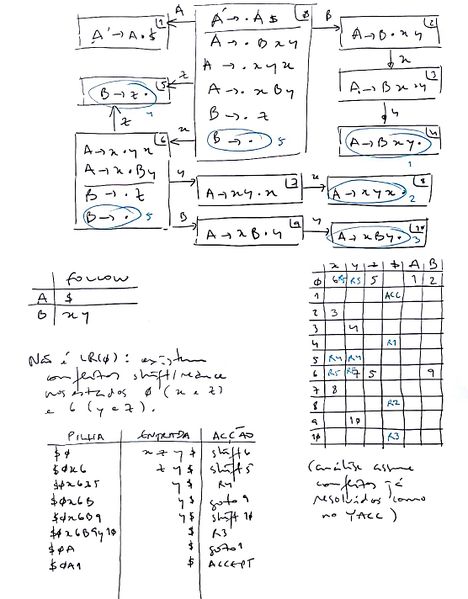 A' → A . $ 1
A
A' → . A $ 0
A → . B x y
A → . x y x
A → . x B y
B → . z
B → . 5
B
A → B . x y 2
x
A → B x . y 3
y
A → B x y . 4
1
z
B → z . 5
4
z
x
A → x . y x 6
A → x . B y
B → . z
B → . 5
y
A → x y . x 7
x
A → x y x . 8
2
B
A → x B . y 9
y
A → x B y . 10
3
FOLLOW
A $
B x y
x y z $ A B
0 6 R5 R5 5 1 2
1 ACC
2 3
3 4
4 R1
5 R4 R4
6 R5 R5 7 5 9
7 8
8 R2
9 10
10 R3
Não é LR(0) : existem
conflitos shift/reduce
nos estados 0 (x e z)
e 6 (y e z).
PILHA ENTRADA ACÇÃO
$0 x z y $ shift 6
$0x6 z y $ shift 5
$0x6z5 y $ R4
$0x6B y $ goto 9
$0x6B9 y $ shift 10
$0x6B9y10 $ R3
$0A $ goto 1
$0A1 $ ACCEPT
(análise assume
conflitos já
resolvidos como
no YACC)